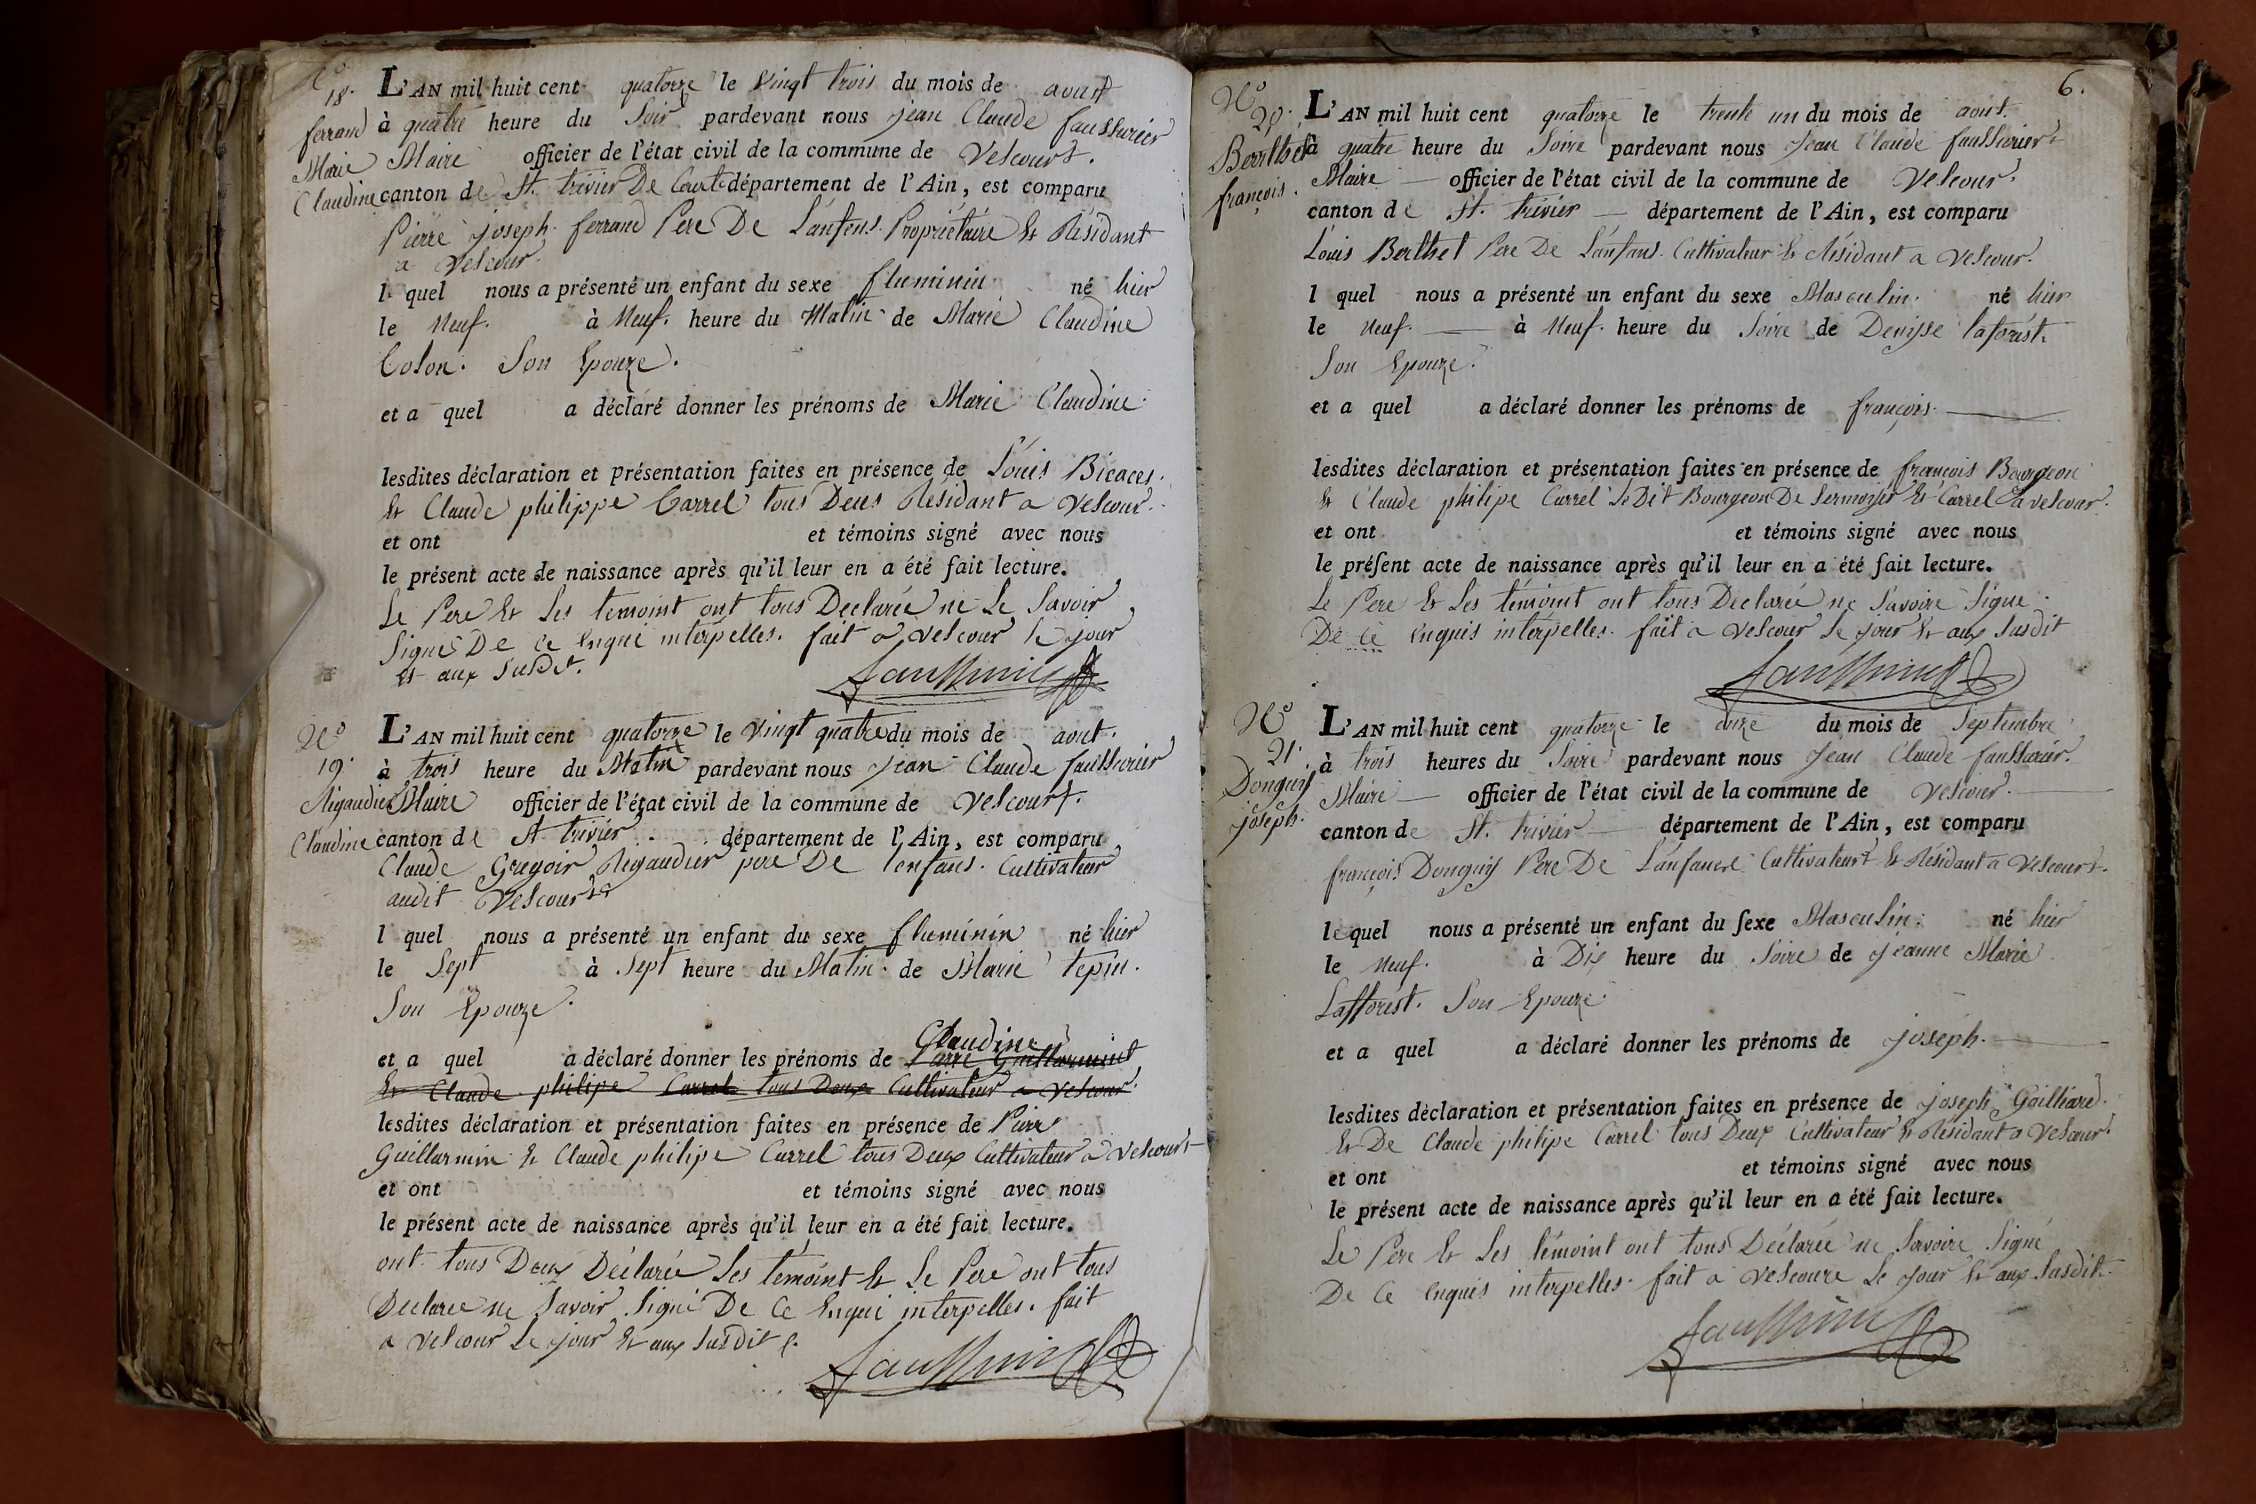 N.o
18.
ferrand
Marie
Claudine
L'AN mil huit cent quatorze le vingt trois du mois de aoust
à quatre heure du Soir pardevant nous jean Claude faussurier
Maire officier de l'état civil de la commune de Vescourt.
canton de St. trivier De Court département de l'Ain, est comparu
Pierre joseph ferrand Pere De L'anfens Propriétaire Et Résidant
a Vescour.
l quel nous a présenté un enfant du sexe fluminin né hier
le Neuf. à Neuf. heure du Matin de Marie Claudine
Colon. Son Epouze.
et a quel a déclaré donner les prénoms de Marie Claudine.
lesdites déclaration et présentation faites en présence de Louis Bicaces.
Et Claude philippe Carrel tous Deus Residant a Vescour.
et ont et témoins signé avec nous
le présent acte de naissance après qu'il leur en a été fait lecture.
Le Pere Et Les temoint ont tous Declarée ne Le Savoir
Signé De Ce Enqué interpelles. fait a vescour le jour
Et aux Susdit.
N.o
19.
Rigaudier
Claudine
L'AN mil huit cent quatorze le Vingt quatre du mois de aout.
à trois heure du Matin pardevant nous jean Claude faussurier
Maire officier de l'état civil de la commune de Vescourt.
canton de St trivier. département de l'Ain, est comparu
Claude Gregoir Regaudier pere De lenfans. Cultivateur
audit Vescourt
l quel nous a présenté un enfant du sexe fluminin né hier
le Sept à Sept heure du Matin de Marie tepin.
Son Epouze.
Claudine
et a quel a déclaré donner les prénoms de Pierre Guillarmint
Et Claude philipe Carrel tous Deux Cultivateur a Vescour.
lesdites déclaration et présentation faites en présence de Pierr
Guillarmin Et Claude philipe Carrel tous Deux Cultivateur a Vescourt
et ont et témoins signé avec nous
le présent acte de naissance après qu'il leur en a été fait lecture.
ont tous Deux Déclarée Les témoint Et Le Pere ont tous
Declaree ne Savoir Signé De Ce Enqué interpelles. fait
a Vescour Le jour Et aux Susdit
6.
N.o
20.
Berthet
françois.
L'AN mil huit cent quatorze le trente un du mois de aout.
à quatre heure du Soire pardevant nous Jean Claude faussurier
Maire officier de l'état civil de la commune de Vescour.
canton de St. trivier département de l'Ain, est comparu
Louis Berthet Pere De L'anfans. Cultivateur Et Résidant a Vescour.
l quel nous a présenté un enfant du sexe Masculin. né hier
le Neuf. à Neuf. heure du Soire de Denisse laforist.
Son Epouze.
et a quel a déclaré donner les prénoms de françois.
lesdites déclaration et présentation faites en présence de françois Bourgeon
Et Claude philipe Carrel Le Dit Bourgeon De Sermoyer Et Carrel a vescour.
et ont et témoins signé avec nous
le présent acte de naissance après qu'il leur en a été fait lecture.
Le Pere Et Les témoint ont tous Declarée ne Savoire Signe.
De Ce Enquis interpelles. fait a Vescour Le jour Et aux Susdit
N.o
21.
Donguy
joseph.
L'AN mil huit cent quatorze le onze du mois de Septembre
à trois heures du Soire pardevant nous Jean Claude faussurier.
Maire officier de l'état civil de la commune de Vescour.
canton de St. trivier département de l'Ain, est comparu
françois Donguy Pere De L'anfance Cultivateur Et Résidant a Vescourt.
le quel nous a présenté un enfant du sexe Masculin. né hier
le Neuf. à Dix heure du Soire de Jeanne Marie
Lafforest. Son Epouze
et a quel a déclaré donner les prénoms de joseph.
lesdites déclaration et présentation faites en présence de joseph Gailliard.
Et De Claude philipe Carrel tous Deux Cultivateur Et Résidant a Vescour.
et ont et témoins signé avec nous
le présent acte de naissance après qu'il leur en a été fait lecture.
Le Pere Et Les témoint ont tous Déclarée ne Savoire Signé
De Ce Enquis interpelles. fait a Vescoure Le Jour Et aux Susdit.